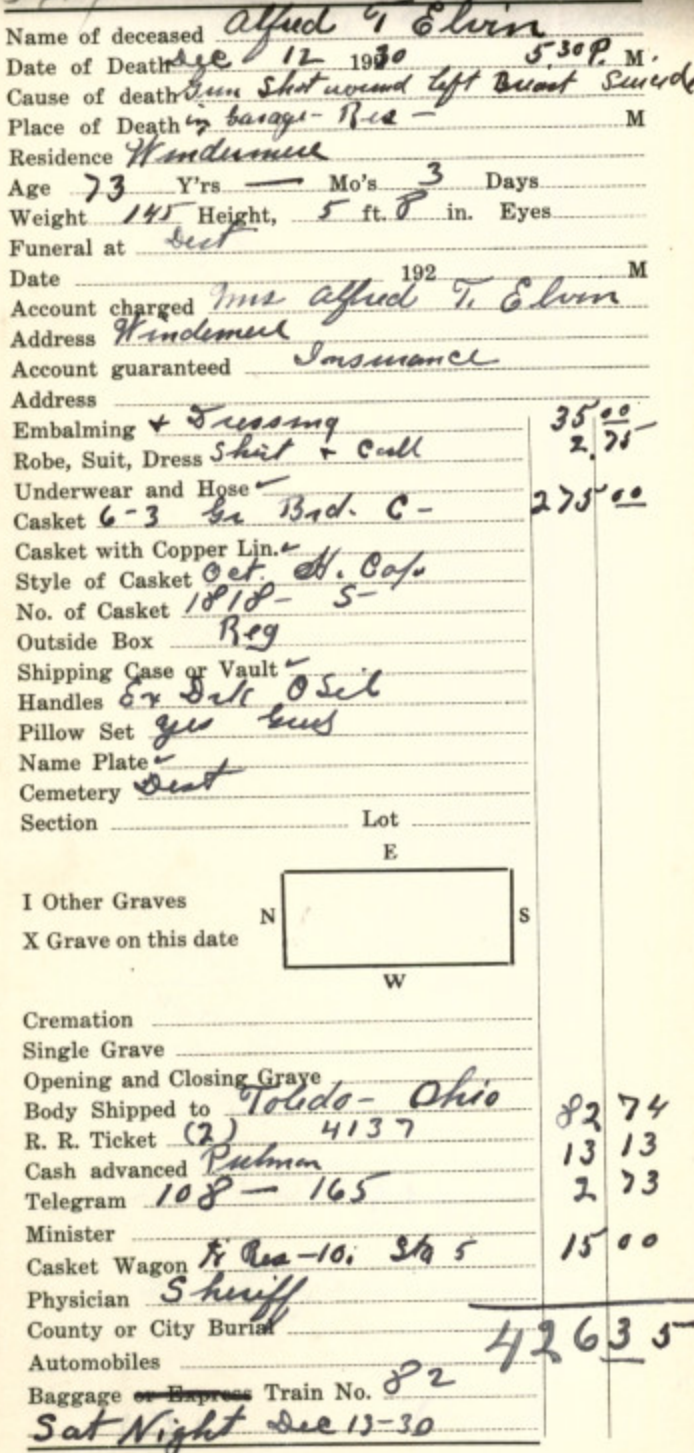 Name of deceased Alfred T Elvin
Date of Death Dec 12 1930 5.30 P. M.
Cause of death Gun Shot wound left Breast Suicide
Place of Death in Garage - Res - M
Residence Windermere
Age 73 Y'rs — Mo's 3 Days
Weight 145 Height, 5 ft. 8 in. Eyes
Funeral at Dest
Date 192 M
Account charged Mrs Alfred T. Elvin
Address Windermere
Account guaranteed Insurance
Address
Embalming + Dressing 35 00
Robe, Suit, Dress Shirt + Coll 2.75
Underwear and Hose
Casket 6-3 Gr Brd. C - 275 00
Casket with Copper Lin.
Style of Casket Oct.
No. of Casket 1818 - S
Outside Box Reg
Shipping Case or Vault
Handles Ex O Sil
Pillow Set yes
Name Plate
Cemetery Dest
Section Lot
E
I Other Graves
N S
X Grave on this date
W
Cremation
Single Grave
Opening and Closing Grave
Body Shipped to Toledo - Ohio 82 74
R. R. Ticket (2) 4137
Cash advanced Pulman 13 13
Telegram 108 — 165 2 73
Minister
Casket Wagon Res - 10. Sta 5 15 00
Physician Sheriff
County or City Burial 426 35
Automobiles
Baggage or Express Train No. 82
Sat Night Dec 13-30